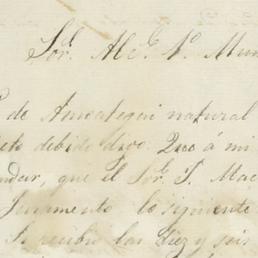 Sor. Alc. N. Mun
de Amoategui natural
eto debido dice. Que á mi
ndar, que el Sor. J. Mac
Juramento lo siguiente
Se recibió las diez y seis